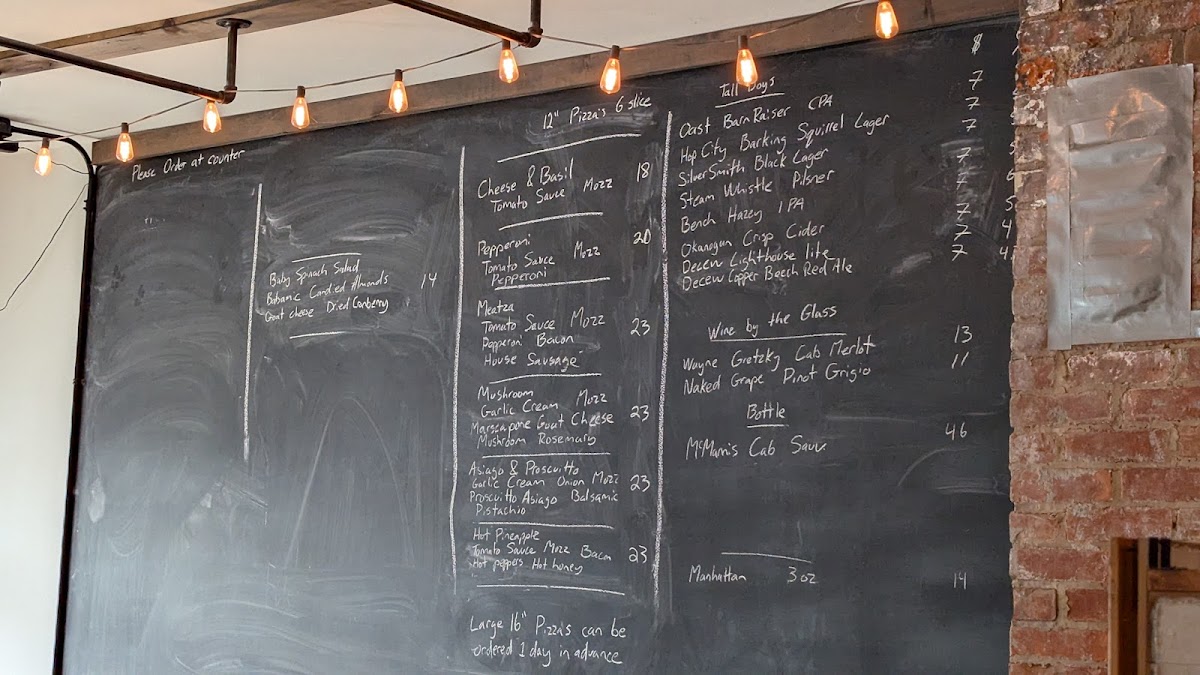 Please Order at counter
Baby Spinach Salad
Balsamic Candied Almonds 14
Goat cheese Dried Cranberry
12" Pizza's 6 slice
Cheese & Basil 18
Tomato Sauce Mozz
Pepperoni 20
Tomato Sauce Mozz
Pepperoni
Meatza
Tomato Sauce Mozz 23
Pepperoni Bacon
House Sausage
Mushroom
Garlic Cream Mozz
Marscapone Goat Cheese 23
Mushroom Rosemary
Asiago & Proscuitto
Garlic Cream Onion Mozz 23
Proscuitto Asiago Balsamic
Pistachio
Hot Pineapple
Tomato Sauce Mozz Bacon 23
Hot peppers Hot honey
Large 16" Pizza's can be
ordered 1 day in advance
Tall Boys $
Oast Barn Raiser CPA 7
Hop City Barking Squirrel Lager 7
SilverSmith Black Lager 7
Steam Whistle Pilsner 7
Bench Hazey IPA 7
Okanogan Crisp Cider 7
Decew Lighthouse lite 7
Decew Copper Beech Red Ale 7
Wine by the Glass
Wayne Gretzky Cab Merlot 13
Naked Grape Pinot Grigio 11
Bottle
McManis Cab Sauv 46
Manhattan 3oz 14